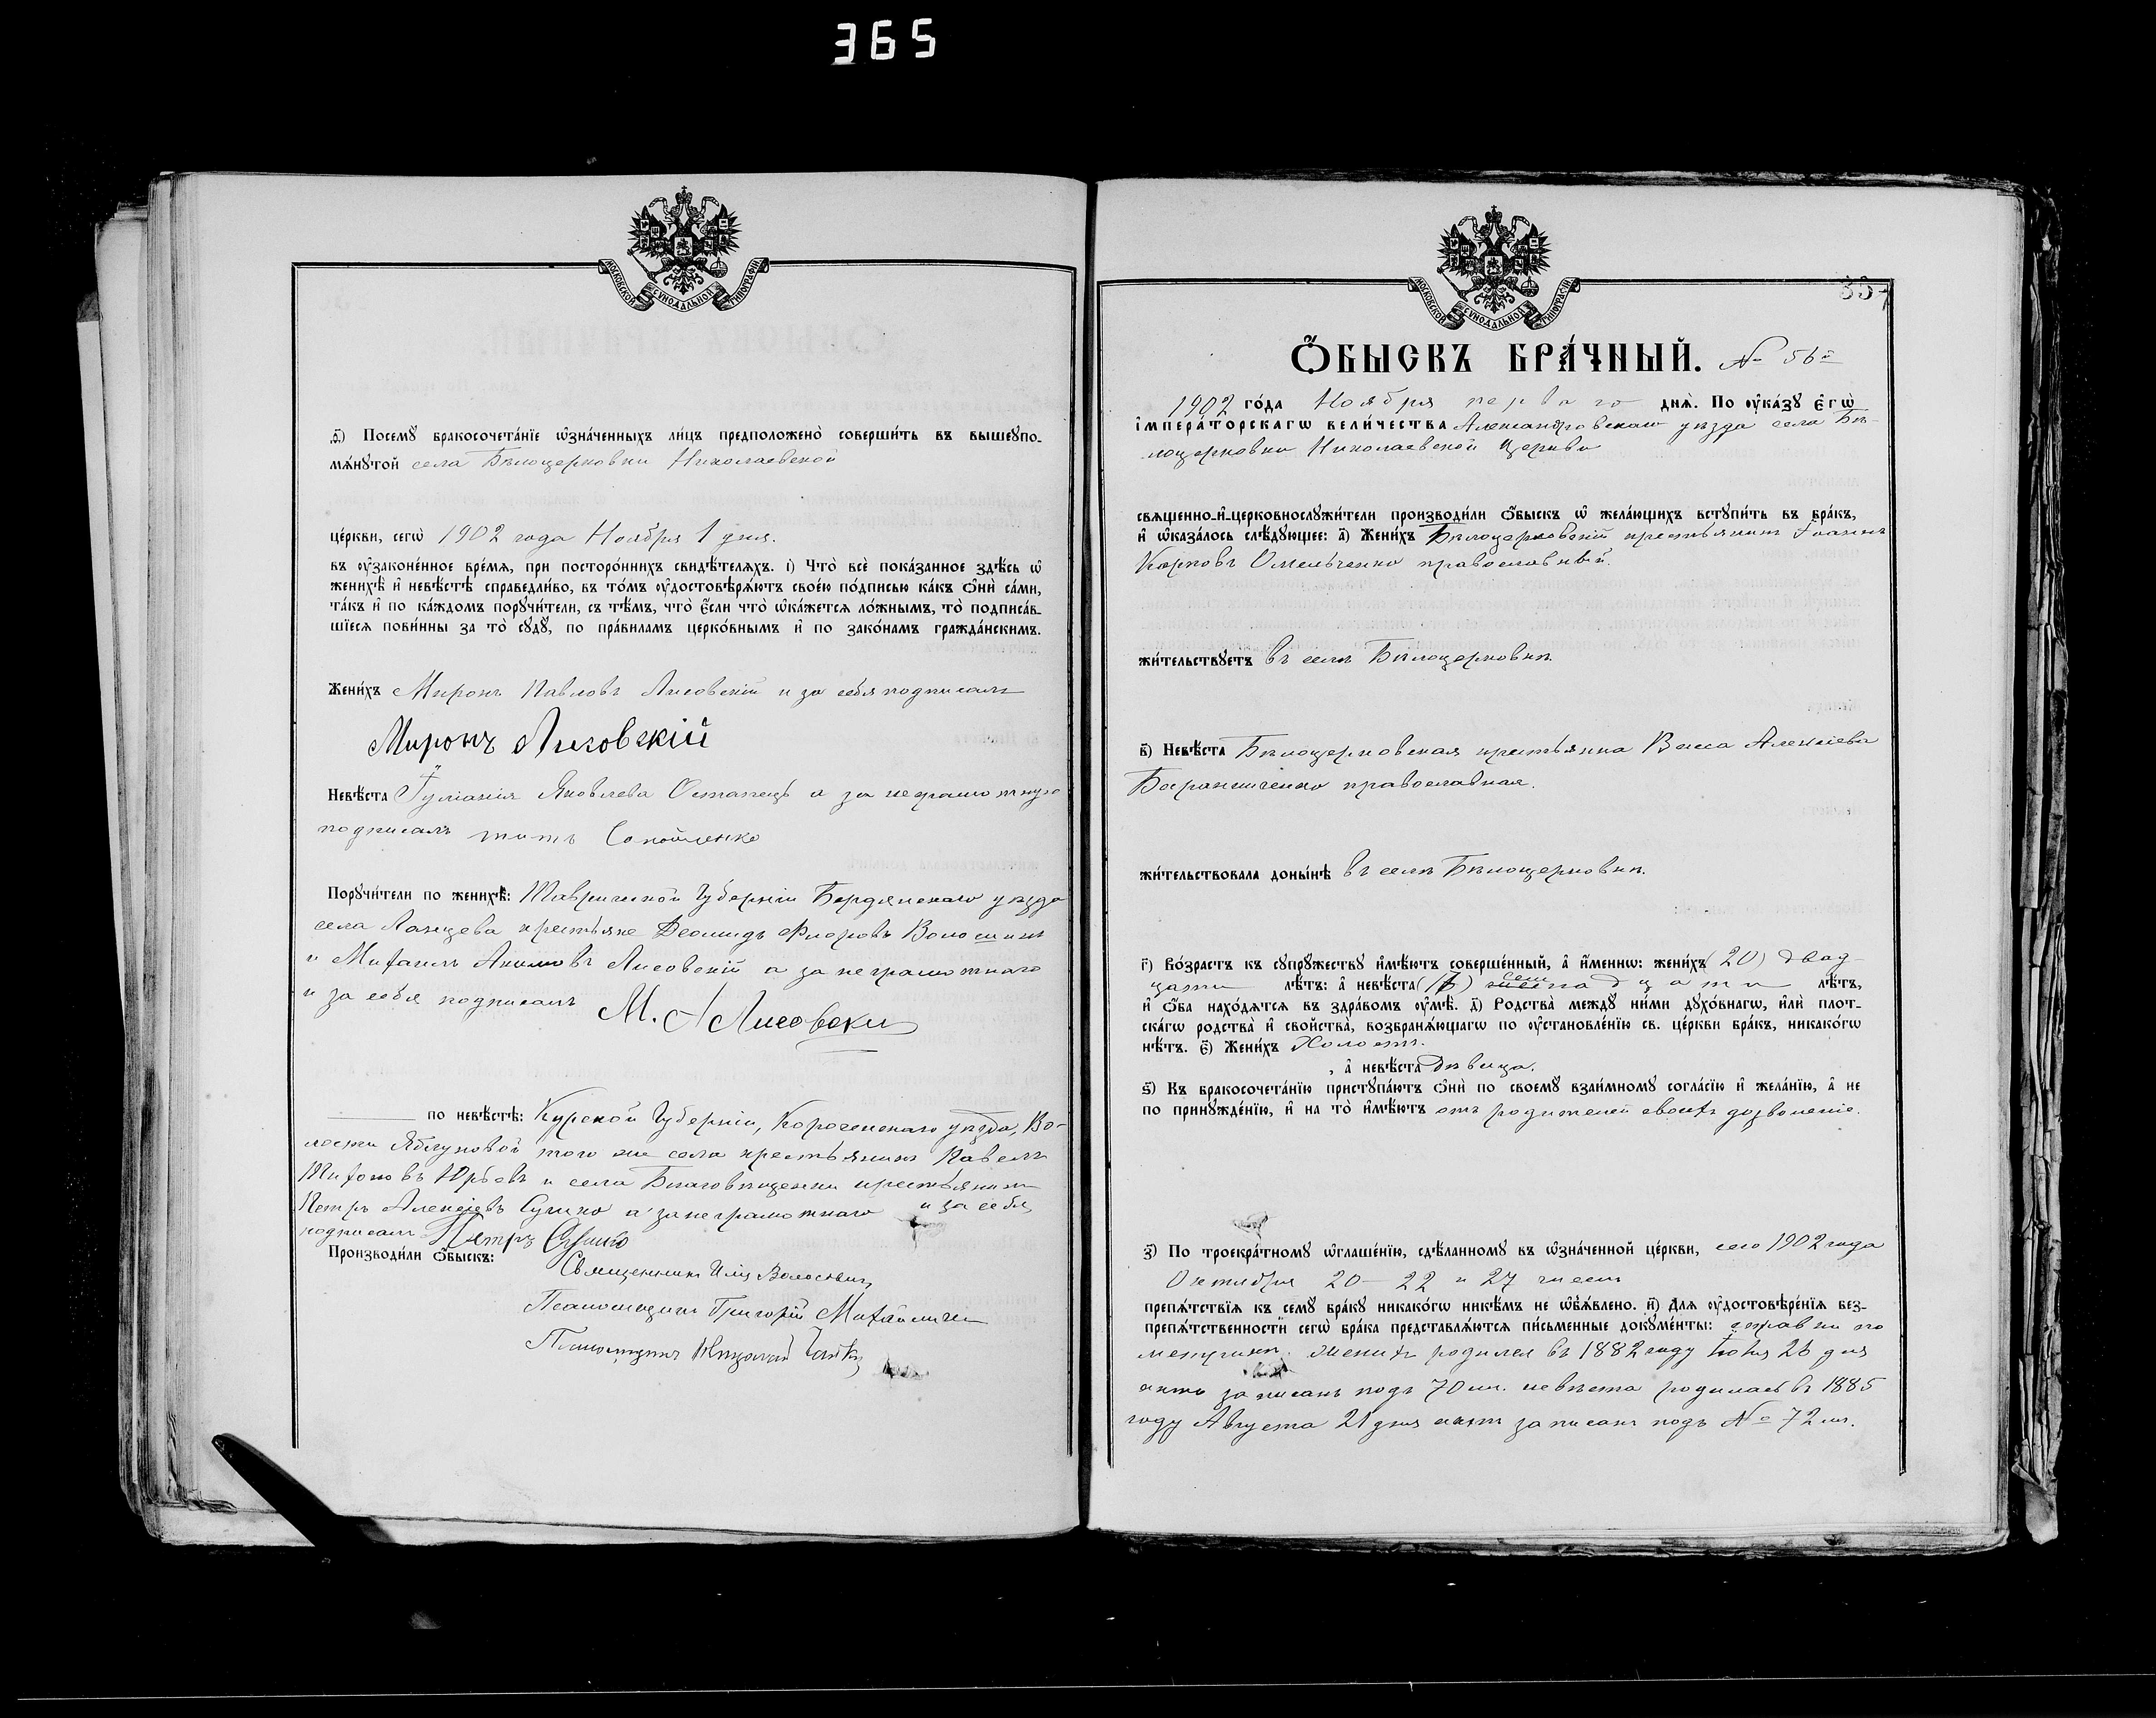 365
МОСКОВСКОЙ СѴНОДАЛЬНОЙ ТИПОГРАФІИ
ѳ҃) Посемꙋ̀ бракосочета́нїе ѡ҆зна́ченныхъ ли́цъ предположено̀ соверши́ть въ вышеꙋпо-
мѧ́нꙋтой села Бѣлоцерковки Николаевской
це́ркви, сегѡ̀ 1902 года Ноября 1 дня.
въ ᲂу҆зако́ненное вре́мѧ, при посторо́ннихъ свидѣ́телѧхъ. і҃) Что̀ всѐ пока́занное здѣ́сь ѡ҆
женихѣ̀ и҆ невѣ́стѣ справедли́во, въ то́мъ ᲂу҆достовѣрѧ́ютъ свое́ю по́дписью ка́къ ѻ҆нѝ са́ми,
та́къ и҆ по ка́ждомъ порꙋчи́тели, съ тѣ́мъ, что̀ є҆́сли что̀ ѡ҆ка́жетсѧ ло́жнымъ, то̀ подписа́в-
шїесѧ пови́нны за то̀ сꙋдꙋ̀, по пра́виламъ церко́внымъ и҆ по зако́намъ гражда́нскимъ.
Жени́хъ Миронъ Павловъ Лисовскій и за себя подписалъ
Миронъ Лисовскій
Невѣ́ста Іуліанія Яковлева Остапецъ а за неграмотную
подписалъ титъ
Порꙋчи́тели по женихѣ̀: Таврической Губерніи Бердянскаго уѣзда
села крестьяне Леонидъ Флоровъ Волошинъ
и Михаилъ Акимовъ Лисовскій а за неграмотнаго
и за себя подписалъ М. А Лисовски
по невѣ́стѣ: Курской Губерніи, Корочанскаго уѣзда, Во-
лости Яблуновой того же села крестьянинъ Павелъ
Тихоновъ Юрьевъ и села Благовѣщенки крестьянинъ
Петръ Алексіевъ Сучко а за неграмотнаго и за себя
подписалъ Петръ Сучко
Производи́ли ѻ҆́быскъ:
Священникъ Илія Волосевич
Псаломщикъ Григорій
Псаломщикъ Николай
МОСКОВСКОЙ СѴНОДАЛЬНОЙ ТИПОГРАФІИ
357
Ѻ҆́БЫСКЪ БРА́ЧНЫЙ. № 56й
1902 го́да Ноября перваго днѧ̀. По ᲂу҆ка́зꙋ є҆гѡ̀
і҆мпера́торскагѡ вели́чества Александровскаго уѣзда села Бѣ-
лоцерковки Николаевской церкви
свѧщенно-и҆-церковнослꙋжи́тели производи́ли ѻ҆́быскъ ѡ҆ жела́ющихъ встꙋпи́ть въ бра́къ,
и҆ ѡ҆каза́лось слѣ́дꙋющее: а҃) Жени́хъ Бѣлоцерковскій крестьянинъ Іоаннъ
Карповъ Омельченко православный.
жи́тельствꙋетъ въ селѣ Бѣлоцерковкѣ.
в҃) Невѣ́ста Бѣлоцерковская крестьянка Васса Алексіева
Баранниченко православная.
жи́тельствовала донынѣ̀ въ селѣ Бѣлоцерковкѣ.
г҃) Во́зрастъ къ сꙋпрꙋ́жествꙋ и҆мѣ́ютъ соверше́нный, а҆ и҆́меннѡ: жени́хъ (20) двад-
цати лѣ́тъ: а҆ невѣ́ста (17) семнадцати лѣ́тъ,
и҆ ѻ҆́ба нахо́дѧтсѧ въ здра́вомъ ᲂу҆мѣ̀. д҃) Родства̀ междꙋ̀ ни́ми дꙋхо́внагѡ, и҆лѝ плот-
ска́гѡ родства̀ и҆ сво́йства, возбранѧ́ющагѡ по ᲂу҆становле́нїю св. це́ркви бра́къ, никако́гѡ
нѣ́тъ. є҃) Жени́хъ Холостъ.
, а҆ невѣ́ста Дѣвица.
ѕ҃) Къ бракосочета́нїю пристꙋпа́ютъ ѻ҆нѝ по своемꙋ̀ взаи́мномꙋ согла́сїю и҆ жела́нїю, а҆ не
по принꙋжде́нїю, и҆ на то̀ и҆мѣ́ютъ отъ родителей своихъ дозволеніе.
з҃) По троекра́тномꙋ ѡ҆глаше́нїю, сдѣ́ланномꙋ въ ѡ҆зна́ченной це́ркви, сего 1902 года
Октября 20 – 22 и 27 чиселъ
препѧ́тствїѧ къ семꙋ̀ бра́кꙋ никако́гѡ никѣ́мъ не ѡ҆б̾ѧ́влено. и҃) Длѧ ᲂу҆достовѣре́нїѧ без-
препѧ́тственности сегѡ̀ бра́ка представлѧ́ютсѧ пи́сьменные докꙋме́нты: справки по
метрикѣ. женихъ родился въ 1882 году Іюня 26 дня
актъ записанъ подъ 70 м. невѣста родилась въ 1885
году Августа 21 дня актъ записанъ подъ № 72 м.